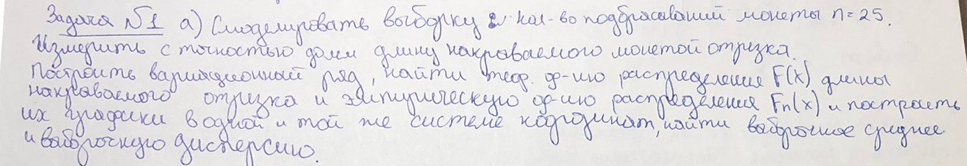 Задача №1 а) Смоделировать выборку кол-во подбрасываний монеты n=25.
Измерить с точностью до мм длину накрываемого монетой отрезка.
Построить вариационный ряд, найти теор. ф-ию распределения F(x) длины
накрываемого отрезка и эмпирическую ф-ию распределения Fn(x) и построить
их графики в одной и той же системе координат, найти выборочное среднее
и выборочную дисперсию.